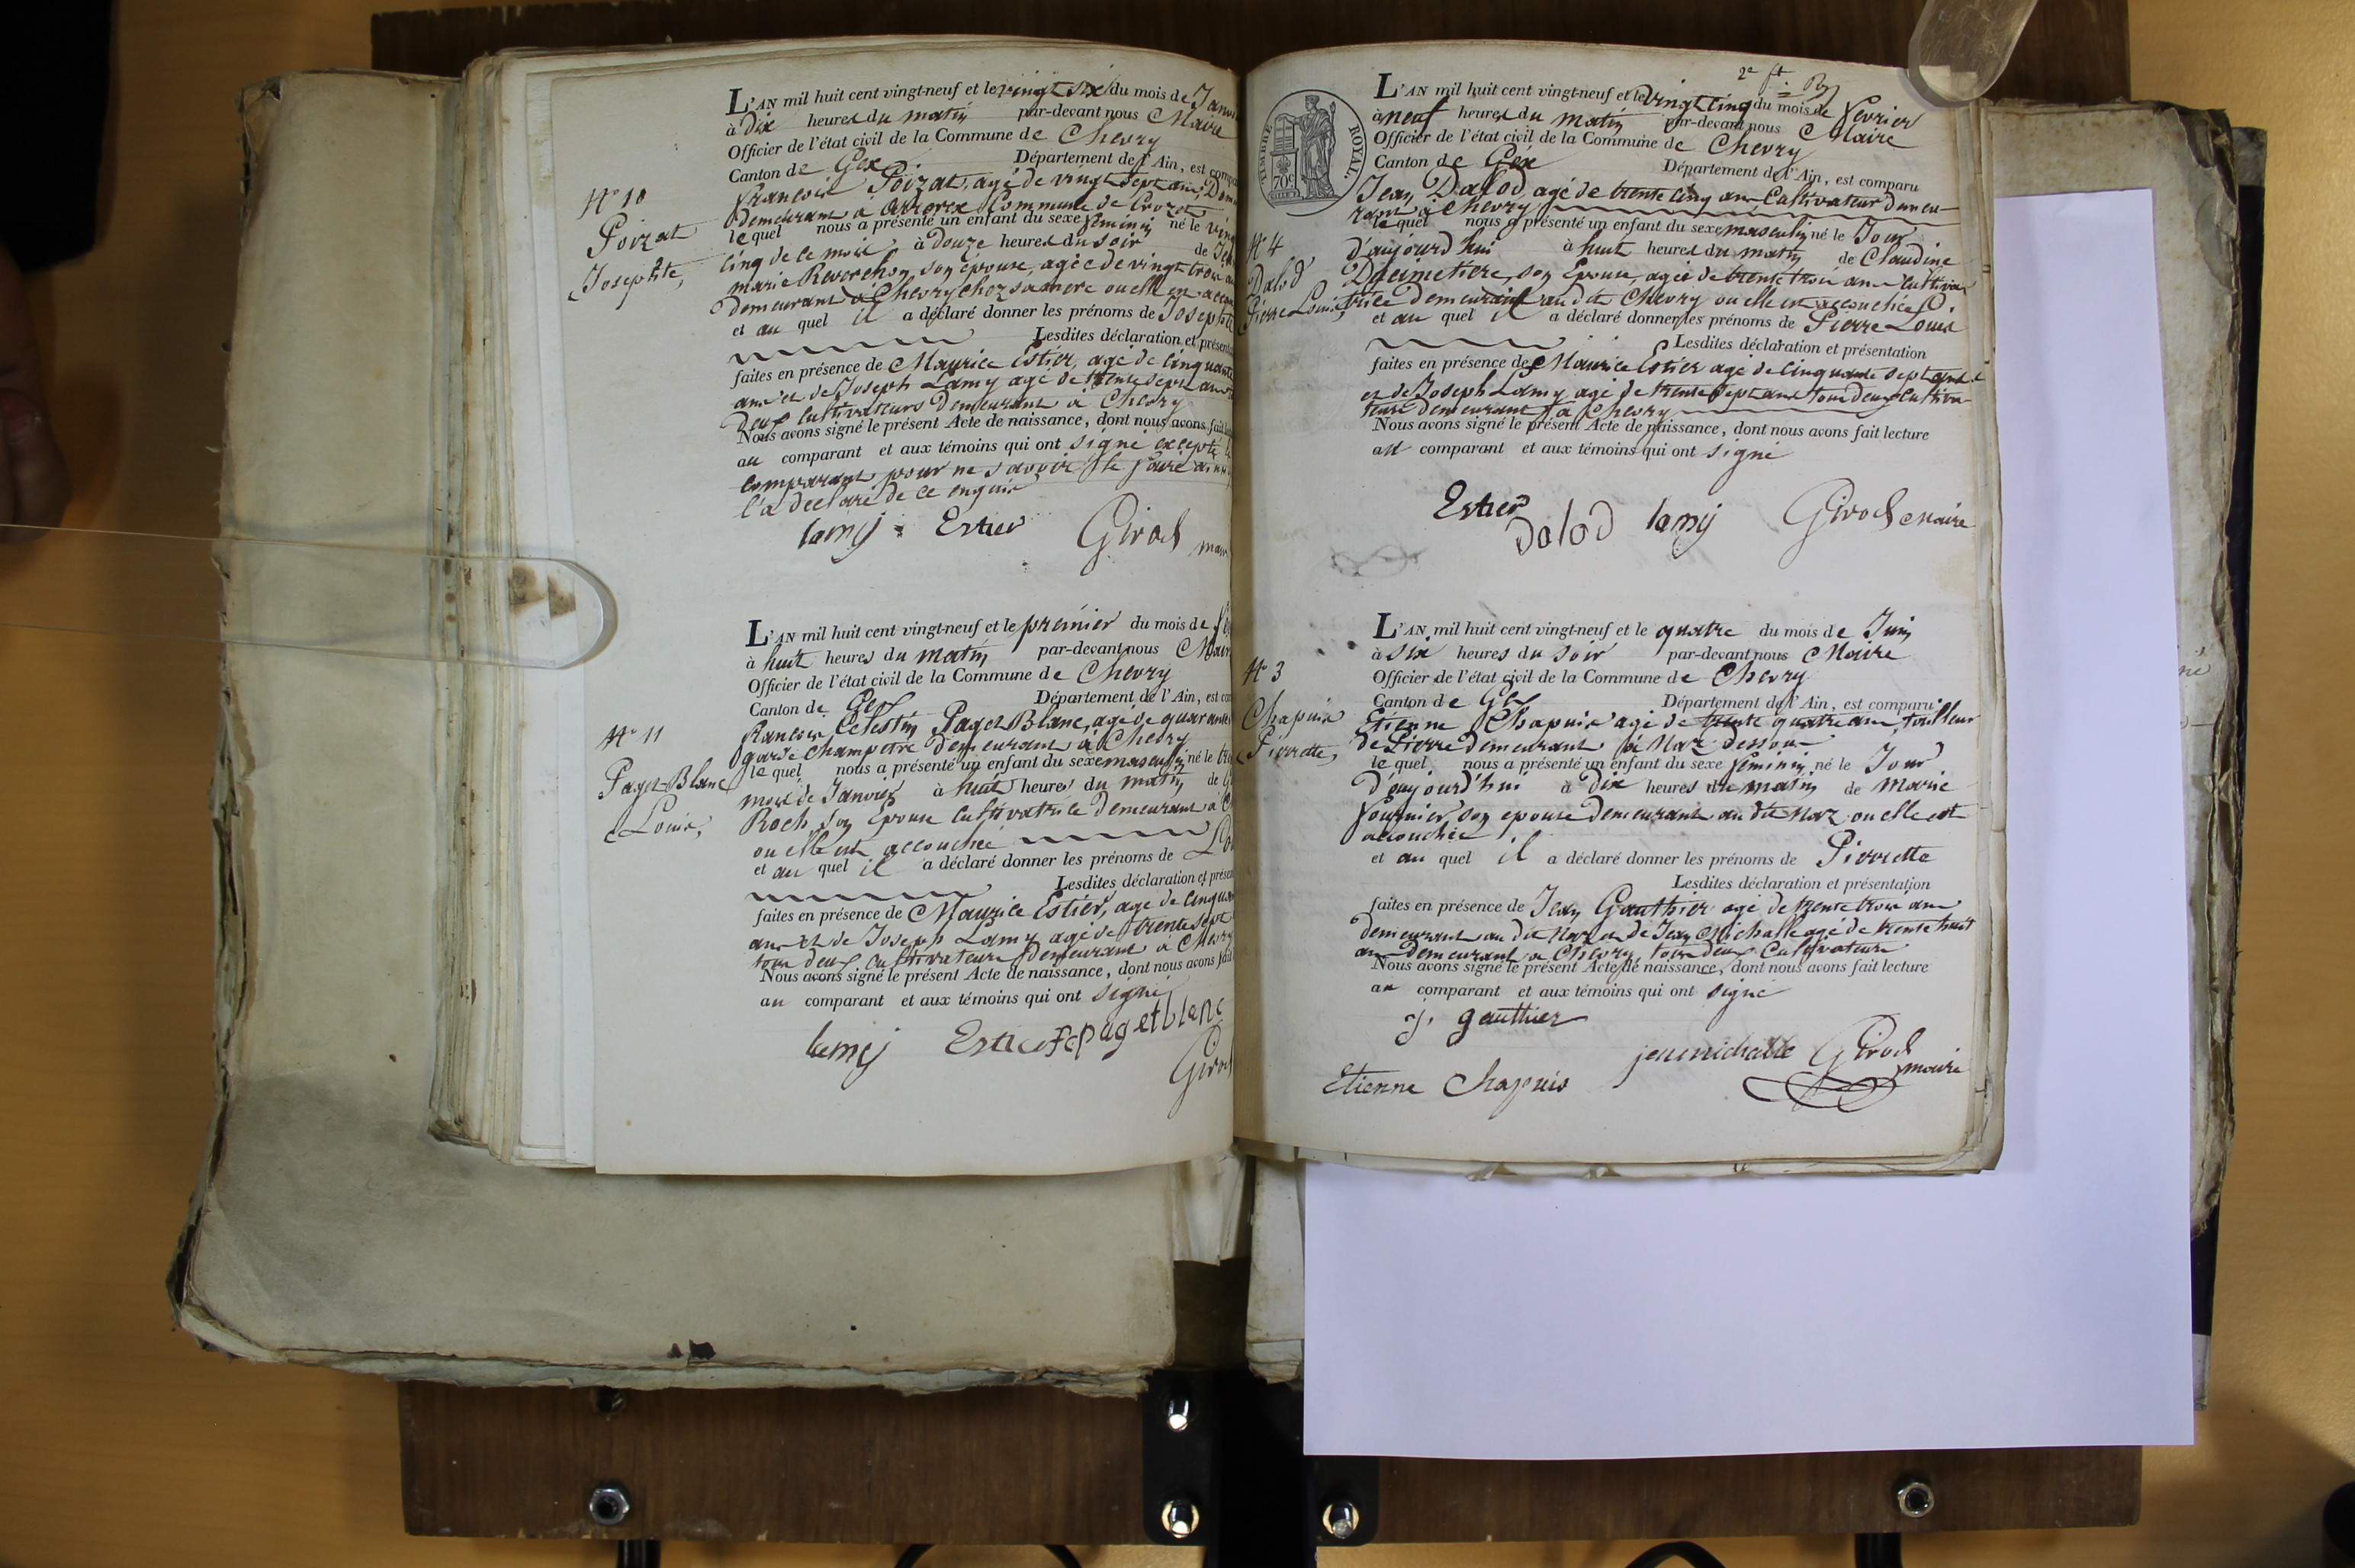 L'AN mil huit cent vingt-neuf et le vingt six du mois de Janvi
à Dix heures du matin par-devant nous Maire
Officier de l'état civil de la Commune de Chevry
Canton de Gex Département de l'Ain, est compa
N° 10
Poizat
Josephte,
francois Poizat, agé de vingt sept ans, Dom
demeurant à Commune de Crozet
le quel nous a présenté un enfant du sexe féminin né le ving
cinq de ce mois à douze heures du soir de
marie Reverchon son épouse, agée de vingt trois a
demeurant à Chevry chez sa mere ou elle en accou
et au quel il a déclaré donner les prénoms de Joseph
Lesdites déclaration et présent
faites en présence de Maurice Estier, agé de cinquante
ans et de Joseph Lamy agé de trente sept ans
deux cultivateurs demeurant à Chevry
Nous avons signé le présent Acte de naissance, dont nous avons fait
au comparant et aux témoins qui ont signé excepté le
comparant pour ne savoir le faire ainsi
l'a déclaré de ce enquis
lamy Estier Girod maire
L'AN mil huit cent vingt-neuf et le premier du mois de
à huit heures du matin par-devant nous Maire
Officier de l'état civil de la Commune de Chevry
Canton de Gex Département de l'Ain, est com
N° 11
Paget-Blanc
Louis,
francois Celestin Paget Blanc, agé de quarante
garde champetre demeurant à Chevry
le quel nous a présenté un enfant du sexe masculin né le
mois de Janvier à huit heures du matin de
Roch son Epouse cultivatrice demeurant à
ou elle est accouchée
et au quel il a déclaré donner les prénoms de Lo
Lesdites déclaration et présen
faites en présence de Maurice Estier, agé de cinquan
ans et de Joseph Lamy agé de trente sept
tous deux cultivateurs demeurant à Chevry
Nous avons signé le présent Acte de naissance, dont nous avons fait
au comparant et aux témoins qui ont signé
lamy Estier fc pagetblanc
Girod
TIMBRE ROYAL.
70c
L'AN mil huit cent vingt-neuf et le vingt cinq du mois de fevrier
à neuf heures du matin par-devant nous Maire
Officier de l'état civil de la Commune de Chevry
Canton de Gex Département de l'Ain, est comparu
N° 4
Dalod
Pierre Louis,
Jean Dalod agé de trente cinq ans Cultivateur demeu-
rant à Chevry
le quel nous a présenté un enfant du sexe masculin né le Jour
d'aujourd'hui à huit heures du matin de Claudine
Ducimetiere, son Epouse, agée de trente trois ans cultiva
trice demeurant au dit Chevry ou elle est accouchée
et au quel il a déclaré donner les prénoms de Pierre Louis
Lesdites déclaration et présentation
faites en présence de Maurice Estier agé de cinquante sept ans
et de Joseph Lamy agé de trente sept ans tous deux cultiva-
teurs demeurant à Chevry
Nous avons signé le présent Acte de naissance, dont nous avons fait lecture
au comparant et aux témoins qui ont signé
Estier Dalod lamy Girod maire
L'AN mil huit cent vingt-neuf et le quatre du mois de Juin
à six heures du soir par-devant nous Maire
Officier de l'état civil de la Commune de Chevry
Canton de Gex Département de l'Ain, est comparu
N° 3
Chapuis
Pierrette,
Etienne Chapuis agé de trente quatre ans, tailleur
de Pierre demeurant à Naz dessous
le quel nous a présenté un enfant du sexe féminin né le Jour
d'aujourd'hui à dix heures du matin de Marie
fournier son epouse demeurant au dit Naz ou elle est
accouchée
et au quel il a déclaré donner les prénoms de Pierrette
Lesdites déclaration et présentation
faites en présence de Jean Gauthier agé de trente trois ans
demeurant au dit Naz et de Jean Michalle agé de trente huit
ans demeurant à Chevry, tous deux Cultivateurs
Nous avons signé le présent Acte de naissance, dont nous avons fait lecture
au comparant et aux témoins qui ont signé
j. gauthier
jean michalle Girod maire
Etienne Chapuis